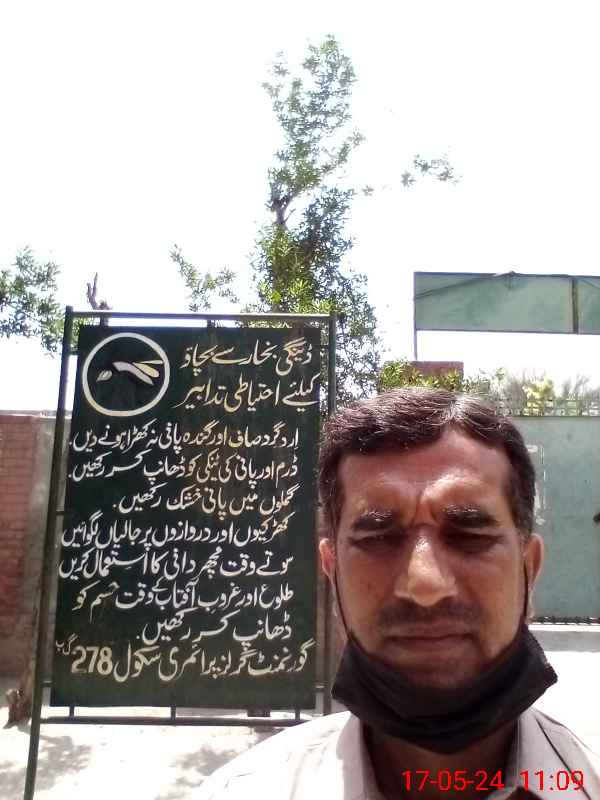 ڈینگی بخار سے بچاؤ
کیلئے احتیاطی تدابیر
ارد گرد صاف اور گندہ پانی نہ کھڑا ہونے دیں.
ڈرم اور پانی کی ٹینکی کو ڈھانپ کر رکھیں.
گملوں میں پانی خشک رکھیں.
کھڑکیوں اور دروازوں پر جالیاں لگوائیں
سوتے وقت مچھر دانی کا استعمال کریں
طلوع اور غروب آفتاب کے وقت جسم کو
ڈھانپ کر رکھیں.
گورنمنٹ گرلز پرائمری سکول 278 گ ب
17-05-24 11:09